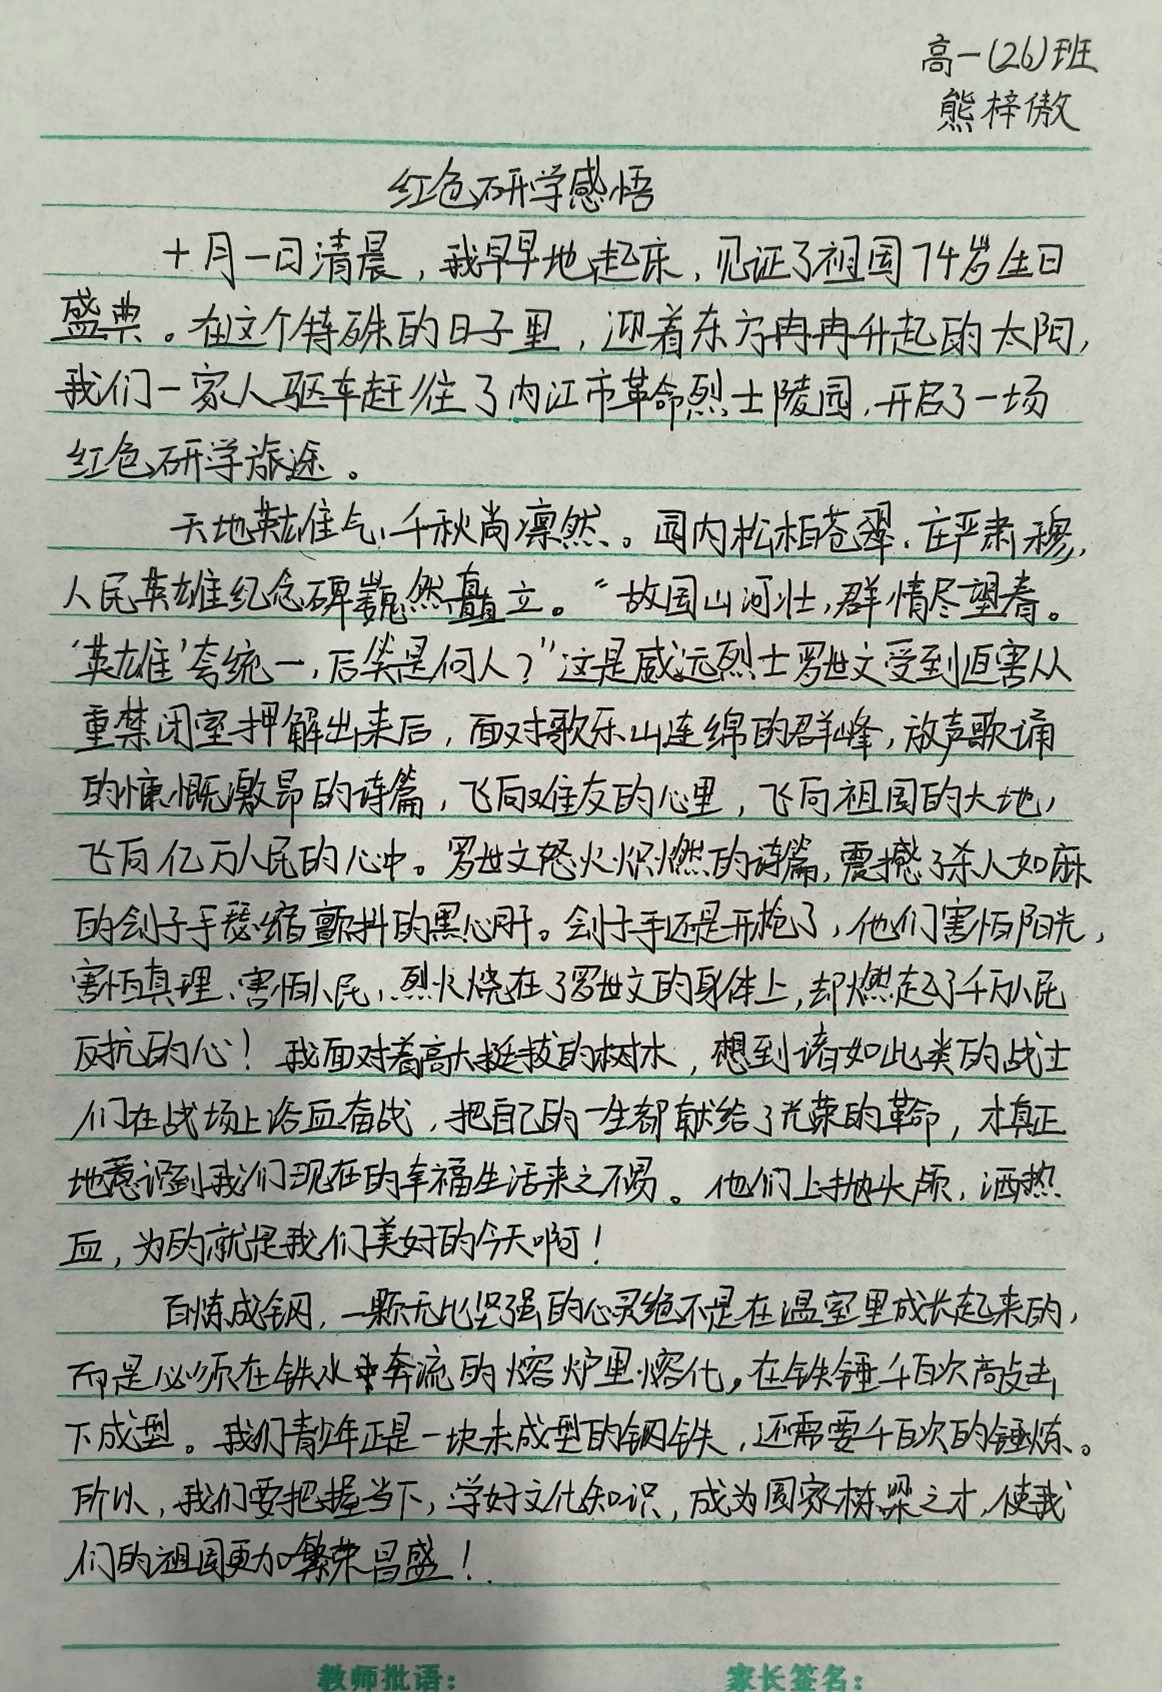 高一(26)班
熊梓傲
红色研学感悟
十月一日清晨，我早早地起床，见证了祖国74岁生日
盛典。在这个特殊的日子里，迎着东方冉冉升起的太阳，
我们一家人驱车赶往了内江市革命烈士陵园，开启了一场
红色研学旅途。
天地英雄气，千秋尚凛然。园内松柏苍翠、庄严肃穆，
人民英雄纪念碑巍然矗立。“故国山河壮，群情尽望春。
‘英雄’夸统一，后笑是何人？”这是威远烈士罗世文受到迫害从
重禁闭室押解出来后，面对歌乐山连绵的群峰，放声歌诵
的慷慨激昂的诗篇，飞向难友的心里，飞向祖国的大地，
飞向亿万人民的心中。罗世文怒火炽燃的诗篇，震撼了杀人如麻
的刽子手瑟缩颤抖的黑心肝。刽子手还是开枪了，他们害怕阳光，
害怕真理、害怕人民，烈火烧在了罗世文的身体上，却燃起了千万人民
反抗的心！我面对着高大挺拔的树木，想到诸如此类的战士
们在战场上浴血奋战，把自己的一生都献给了光荣的革命，才真正
地意识到我们现在的幸福生活来之不易。他们上抛头颅，洒热
血，为的就是我们美好的今天啊！
百炼成钢，一颗无比坚强的心灵绝不是在温室里成长起来的，
而是必须在铁水中奔流的熔炉里熔化，在铁锤千百次敲击
下成型。我们青少年正是一块未成型的钢铁，还需要千百次的锤炼。
所以，我们要把握当下，学好文化知识，成为国家栋梁之才，使我
们的祖国更加繁荣昌盛！
教师批语：
家长签名：